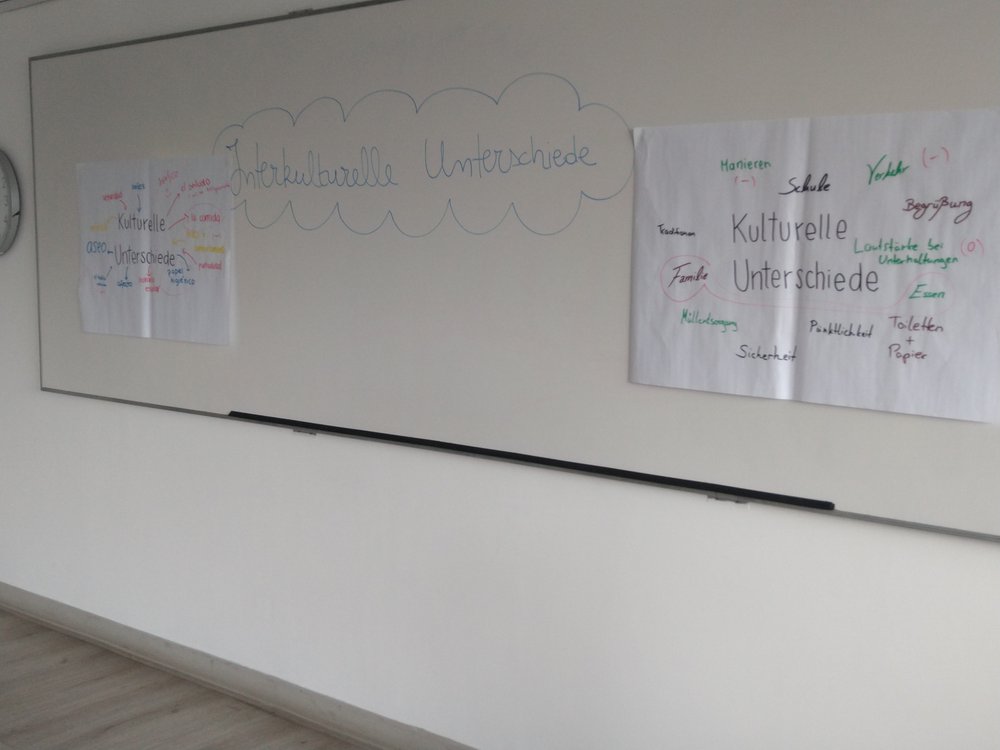 Interkulturelle Unterschiede
tráfico
el saludo
Kulturelle
la comida
aseo
Unterschiede
papel
higiénico
puntualidad
Manieren
(-)
Schule
Verkehr (-)
Begrüßung
Traditionen
Kulturelle
Lautstärke bei (0)
Unterhaltungen
Familie
Unterschiede
Essen
Müllentsorgung
Pünktlichkeit
Toiletten
+
Papier
Sicherheit